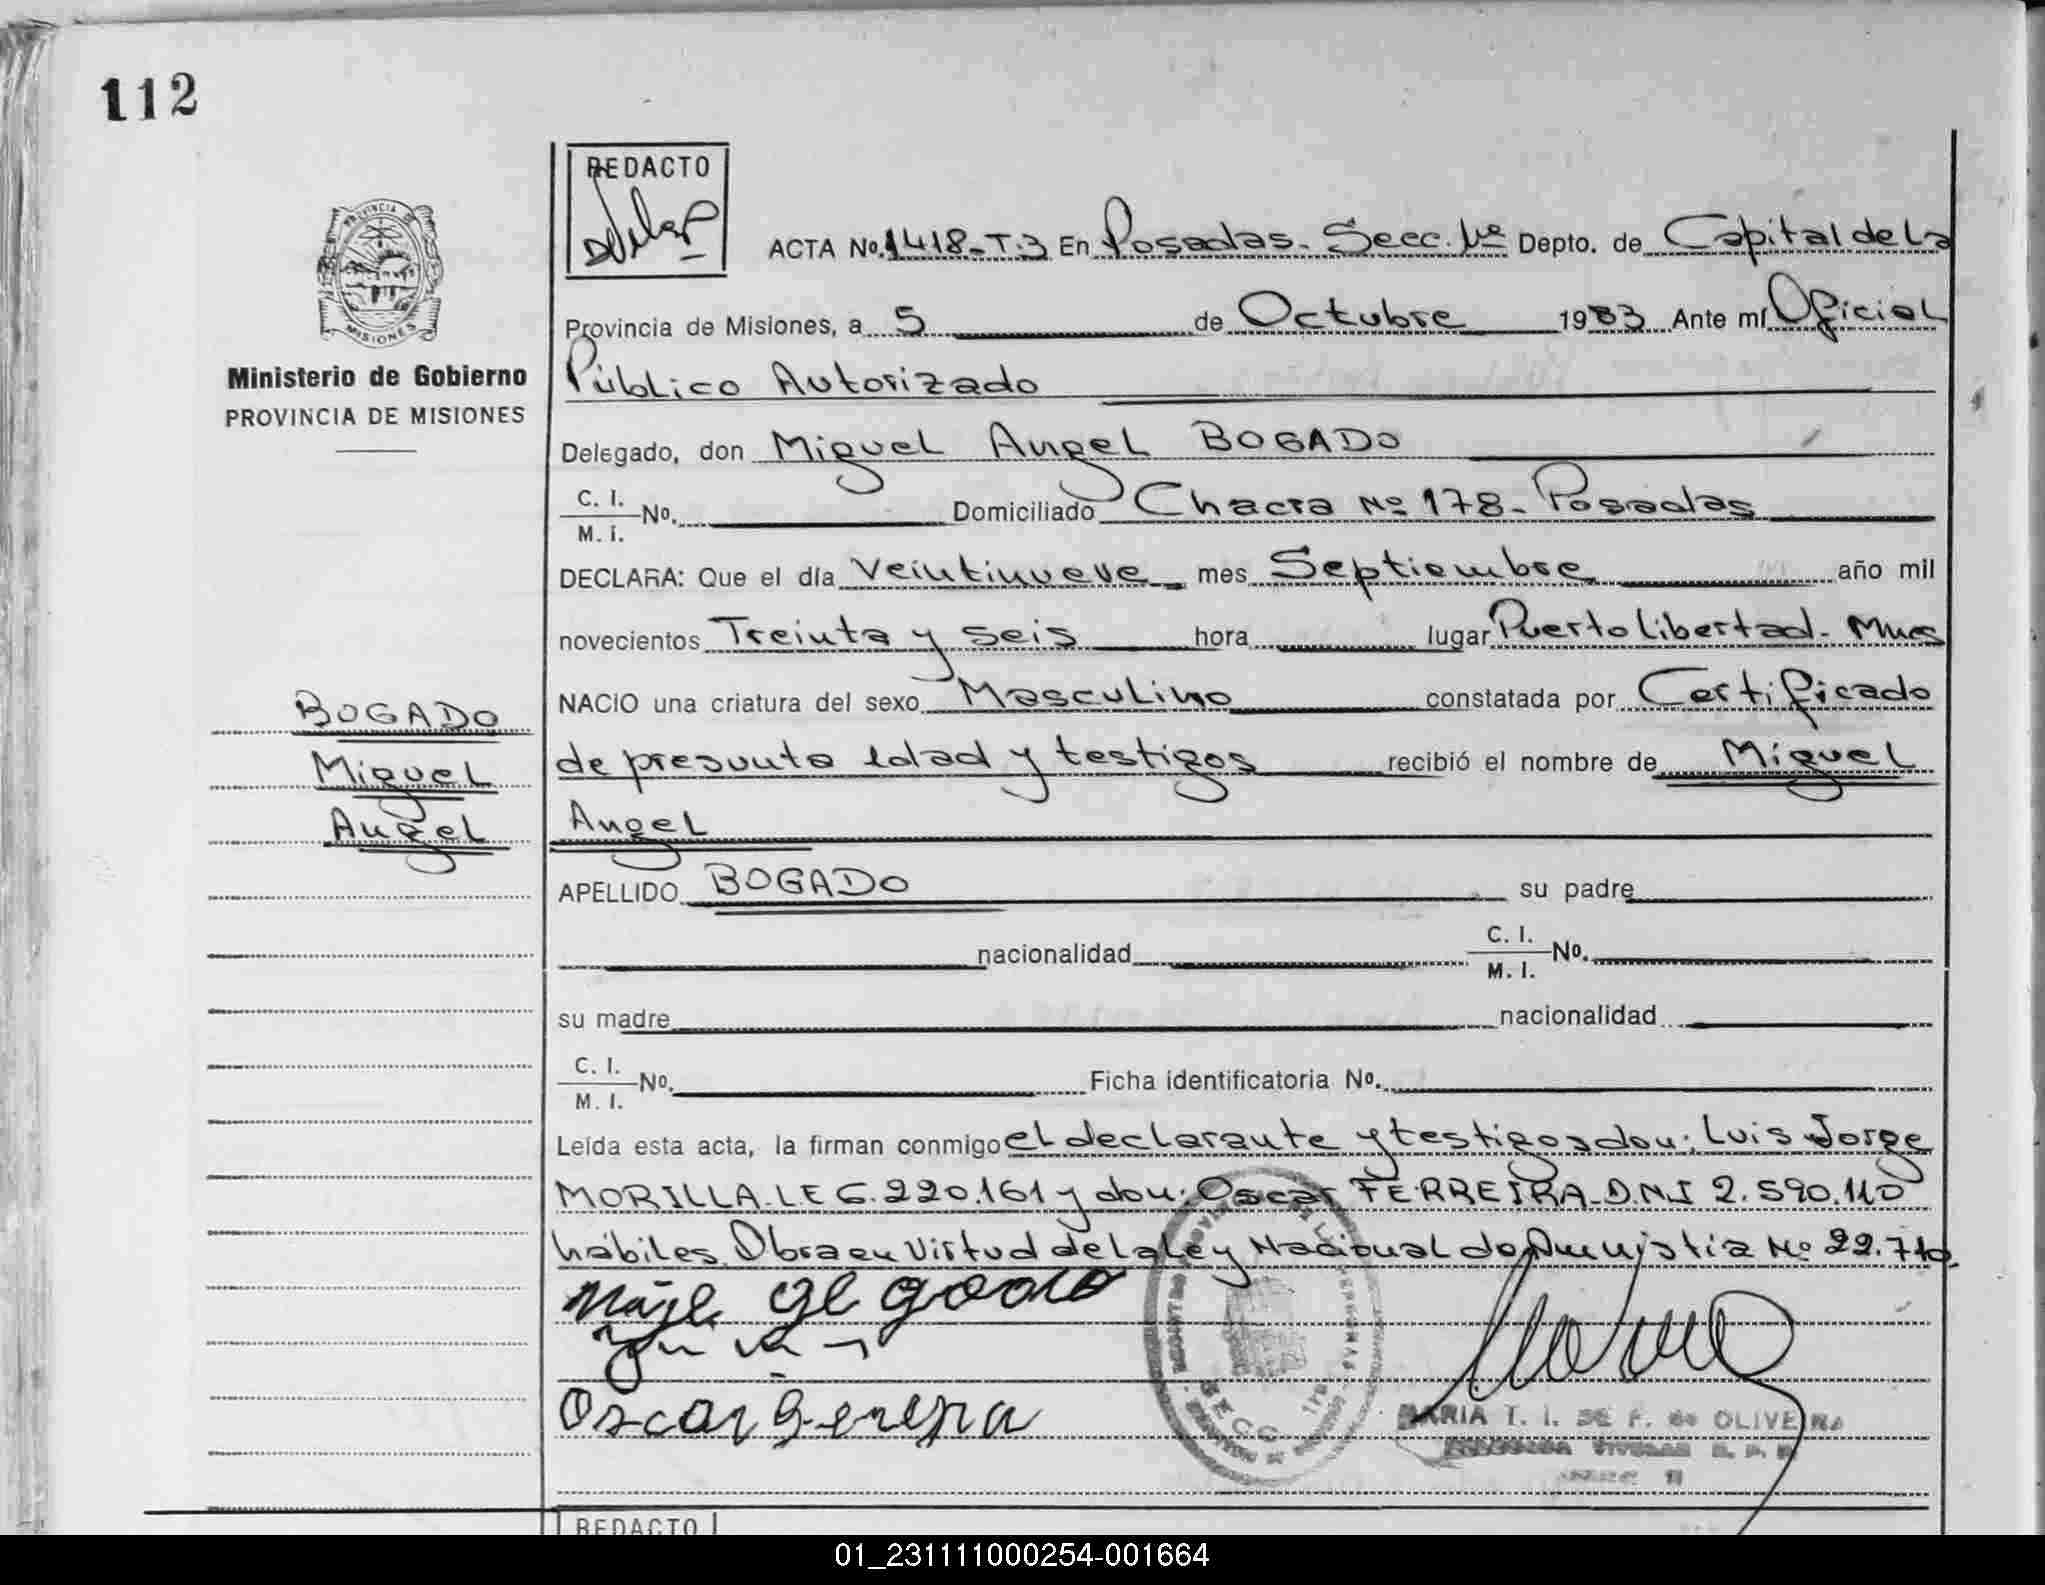 112
REDACTO
PROVINCIA DE
MISIONES
Ministerio de Gobierno
PROVINCIA DE MISIONES
ACTA No. 1418-T.3 En Posadas- Secc. 1ª Depto. de Capital de La
Provincia de Misiones, a 5 de Octubre 1983 Ante mí Oficial
Público Autorizado
Delegado, don Miguel Angel BOGADO
C. I.
M. I. No. Domiciliado Chacra Nº 178- Posadas
DECLARA: Que el día Veintinueve mes Septiembre año mil
novecientos Treinta y seis hora lugar Puerto Libertad- Mnes
NACIO una criatura del sexo Masculino constatada por Certificado
de presunta edad y testigos recibió el nombre de Miguel
Angel
BOGADO
Miguel
Angel
APELLIDO BOGADO su padre
nacionalidad C. I.
M. I. No.
su madre nacionalidad
C. I.
M. I. No. Ficha identificatoria No.
Leída esta acta, la firman conmigo el declarante y testigos don: Luis Jorge
MORILLA-LE 6.220.161 y don: Oscar FERREIRA-D.N.I 2.590.110
hábiles. Obra en Virtud de la Ley Nacional de Amnistia Nº 22.710.
Oscar
SECC 1ra
MARIA T. I. DE F. de OLIVEIRA
REDACTO
01_231111000254-001664